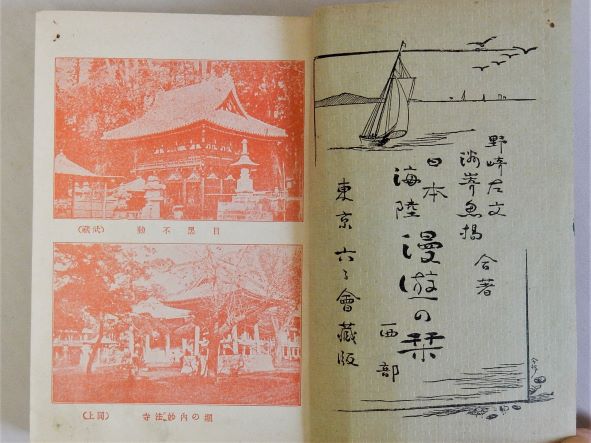 野崎左文
合著
日本
海陸
漫遊の栞
西部
東京 六々會藏版
目黒不動 (武藏)
堀の内妙法寺 (同上)